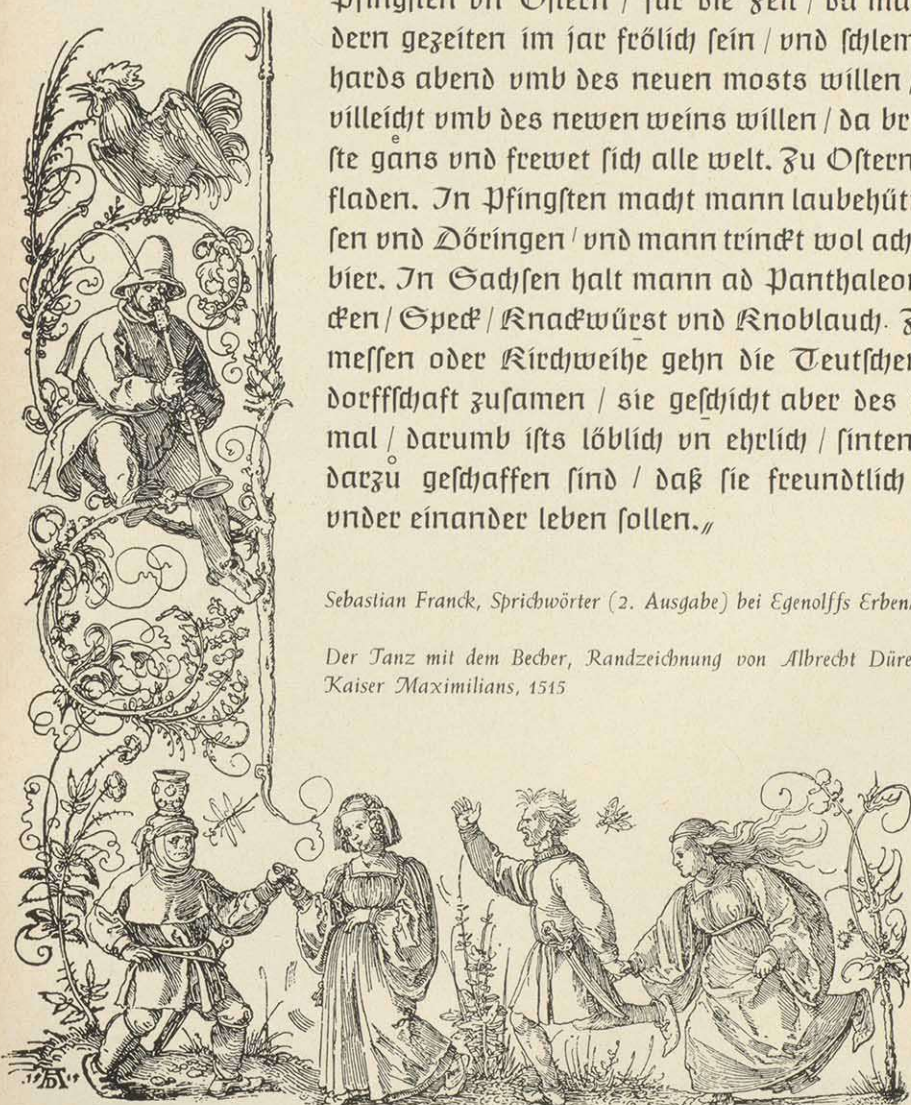 Pfingſten vñ Oſtern / für die zeit / da ma
dern gezeiten im jar frölich ſein / vnd ſchlem
hards abend vmb des neuen moſts willen /
villeicht vmb des newen weins willen / da br
ſte gaͤns vnd frewet ſich alle welt. Zu Oſtern
fladen. In Pfingſten macht mann laubehüt
ſen vnd Döringen / vnd mann trinckt wol ach
bier. In Sachſen halt mann ad Panthaleon
cken / Speck / Knackwürſt vnd Knoblauch.
meſſen oder Kirchweihe gehn die Teutſchen
dorffſchaft zuſamen / sie geſchicht aber des
mal / darumb iſts löblich vn̄ ehrlich / ſinten
darzů geſchaffen ſind / daß ſie freundtlich
vnder einander leben ſollen.„
Sebastian Franck, Sprichwörter (2. Ausgabe) bei Egenolffs Erben
Der Tanz mit dem Becher, Randzeichnung von Albrecht Düre
Kaiser Maximilians, 1515